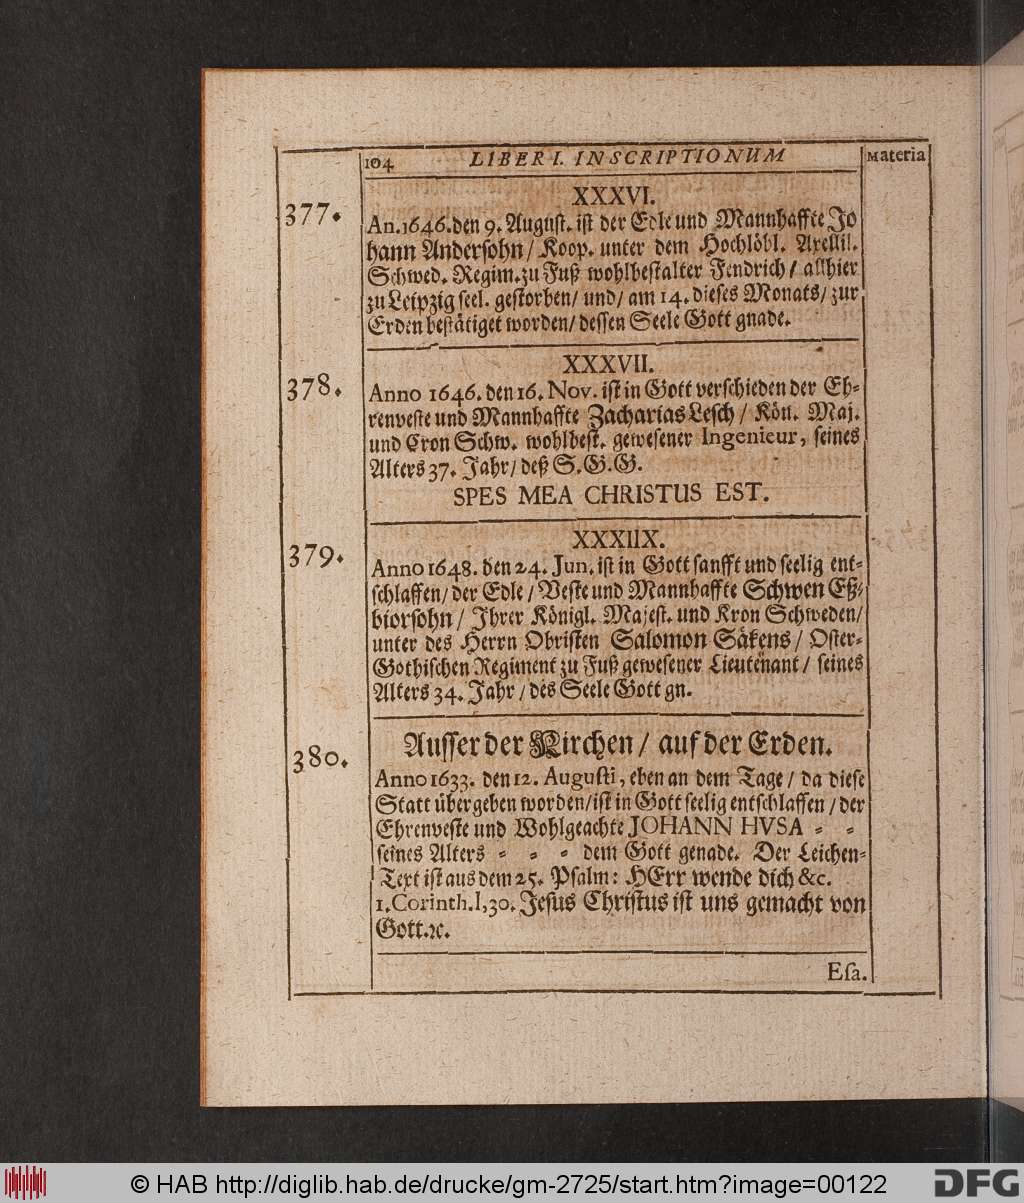 104 LIBER I. INSCRIPTIONUM Materia
XXXVI.
377. An. 1646. den 9. Auguſt. iſt der Edle und Mannhaffte Jo
hann Anderſohn / Koop. unter dem Hochlöbl. Axellil.
Schwed. Regim. zu Fuß wohlbeſtalter Fendrich / allhier
zu Leipzig ſeel. geſtorben / und / am 14. dieſes Monats / zur
Erden beſtätiget worden / deſſen Seele Gott gnade.
XXXVII.
378. Anno 1646. den 16. Nov. iſt in Gott verſchieden der Eh-
renveſte und Mannhaffte Zacharias Leſch / Kön. Maj.
und Cron Schw. wohlbeſt. geweſener Ingenieur, ſeines
Alters 37. Jahr / deß S. G. G.
SPES MEA CHRISTUS EST.
XXXIIX.
379. Anno 1648. den 24. Jun. iſt in Gott ſanfft und ſeelig ent-
ſchlaffen / der Edle / Veſte und Mannhaffte Schwen Eß-
biorſohn / Ihrer Königl. Majeſt. und Kron Schweden /
unter des Herrn Obriſten Salomon Säkens / Oſter-
Gothiſchen Regiment zu Fuß geweſener Lieutenant / ſeines
Alters 34. Jahr / des Seele Gott gn.
Auſſer der Kirchen / auf der Erden.
380. Anno 1633. den 12. Auguſti, eben an dem Tage / da dieſe
Statt übergeben worden / iſt in Gott ſeelig entſchlaffen / der
Ehrenveſte und Wohlgeachte JOHANN HVSA - -
ſeines Alters - - - dem Gott genade. Der Leichen-
Text iſt aus dem 25. Pſalm: HErr wende dich &c.
1. Corinth. I, 30. Jeſus Chriſtus iſt uns gemacht von
Gott. ꝛc.
Eſa.
© HAB http://diglib.hab.de/drucke/gm-2725/start.htm?image=00122 DFG